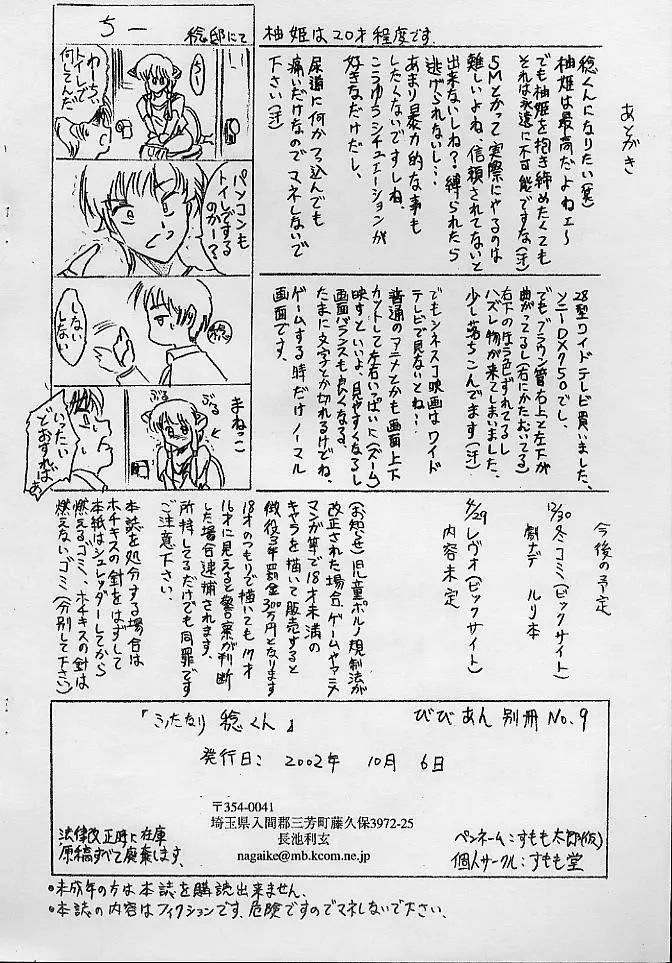 あとがき
柚姫は20才程度です.
稔くんになりたい(笑)
柚姫は最高だよねェ〜
でも柚姫を抱き締めたくても
それは永遠に不可能ですな(汗)
SMとかって実際にやるのは
難しいよね、信頼されてないと
出来ないしね?縛られたら
逃げられないし…
あまり暴力的な事も
したくないですしね、
こうゆうシチュエーションが
好きなだけだし、
尿道に何かつっ込んでも
痛いだけなのでマネしないで
下さい(汗)
稔邸にて
ちー
ちぃ
わーちぃ
トイレで
何してんだ
パソコンも
トイレするのかー?
しないしない
稔
まねっこ
ぷる
ぷる
いったい
どおすれば
あ
28型ワイドテレビ買いました、
ソニーDX750でし、
でもブラウン管右上と左下が
曲がってるし(右にかたむいてる)
右下の圧ラ色ずれてるし
ハズレ物が来てしまいました、
少し落ちこんでます(汗)
でもシネスコ映画はワイド
テレビで見ないとね!
普通のアニメとかも画面上下
カットして左右いっぱいに(ズーム)
映すといいよ、見やすくなるし
画面バランスも良くなる、
たまに文字とか切れるけどね、
ゲームする時だけノーマル
画面です、
今後の予定
12/30冬コミ(ビックサイト)
劇ナデ ルリ本
4/29レヴォ(ビックサイト)
内容未定
(お知らせ)児童ポルノ規制法が
改正された場合、ゲームやアニメ
マンガ等で18才未満の
キャラを描いて販売すると
懲役3年罰金300万円となります
18才のつもりで描いても17才
16才に見えると警察が判断
した場合逮捕されます、
所持してるだけでも同罪です
ご注意下さい、
本誌を処分する場合は
ホチキスの針をはずして
本紙はシュレッダーしてから
燃えるゴミ、ホチキスの針は
燃えないゴミ(分別して下さい)
「ふたなり 稔くん」
びびあん 別冊 No.9
発行日: 2002年 10月 6日
〒354-0041
埼玉県入間郡三芳町藤久保3972-25
長池利玄
nagaike@mb.kcom.ne.jp
法律改正時に在庫
原稿すべて廃棄します.
ペンネーム:すもも太郎(仮)
個人サークル:すもも堂
•未成年の方は本誌を購読出来ません.
•本誌の内容はフィクションです.危険ですのでマネしないで下さい.